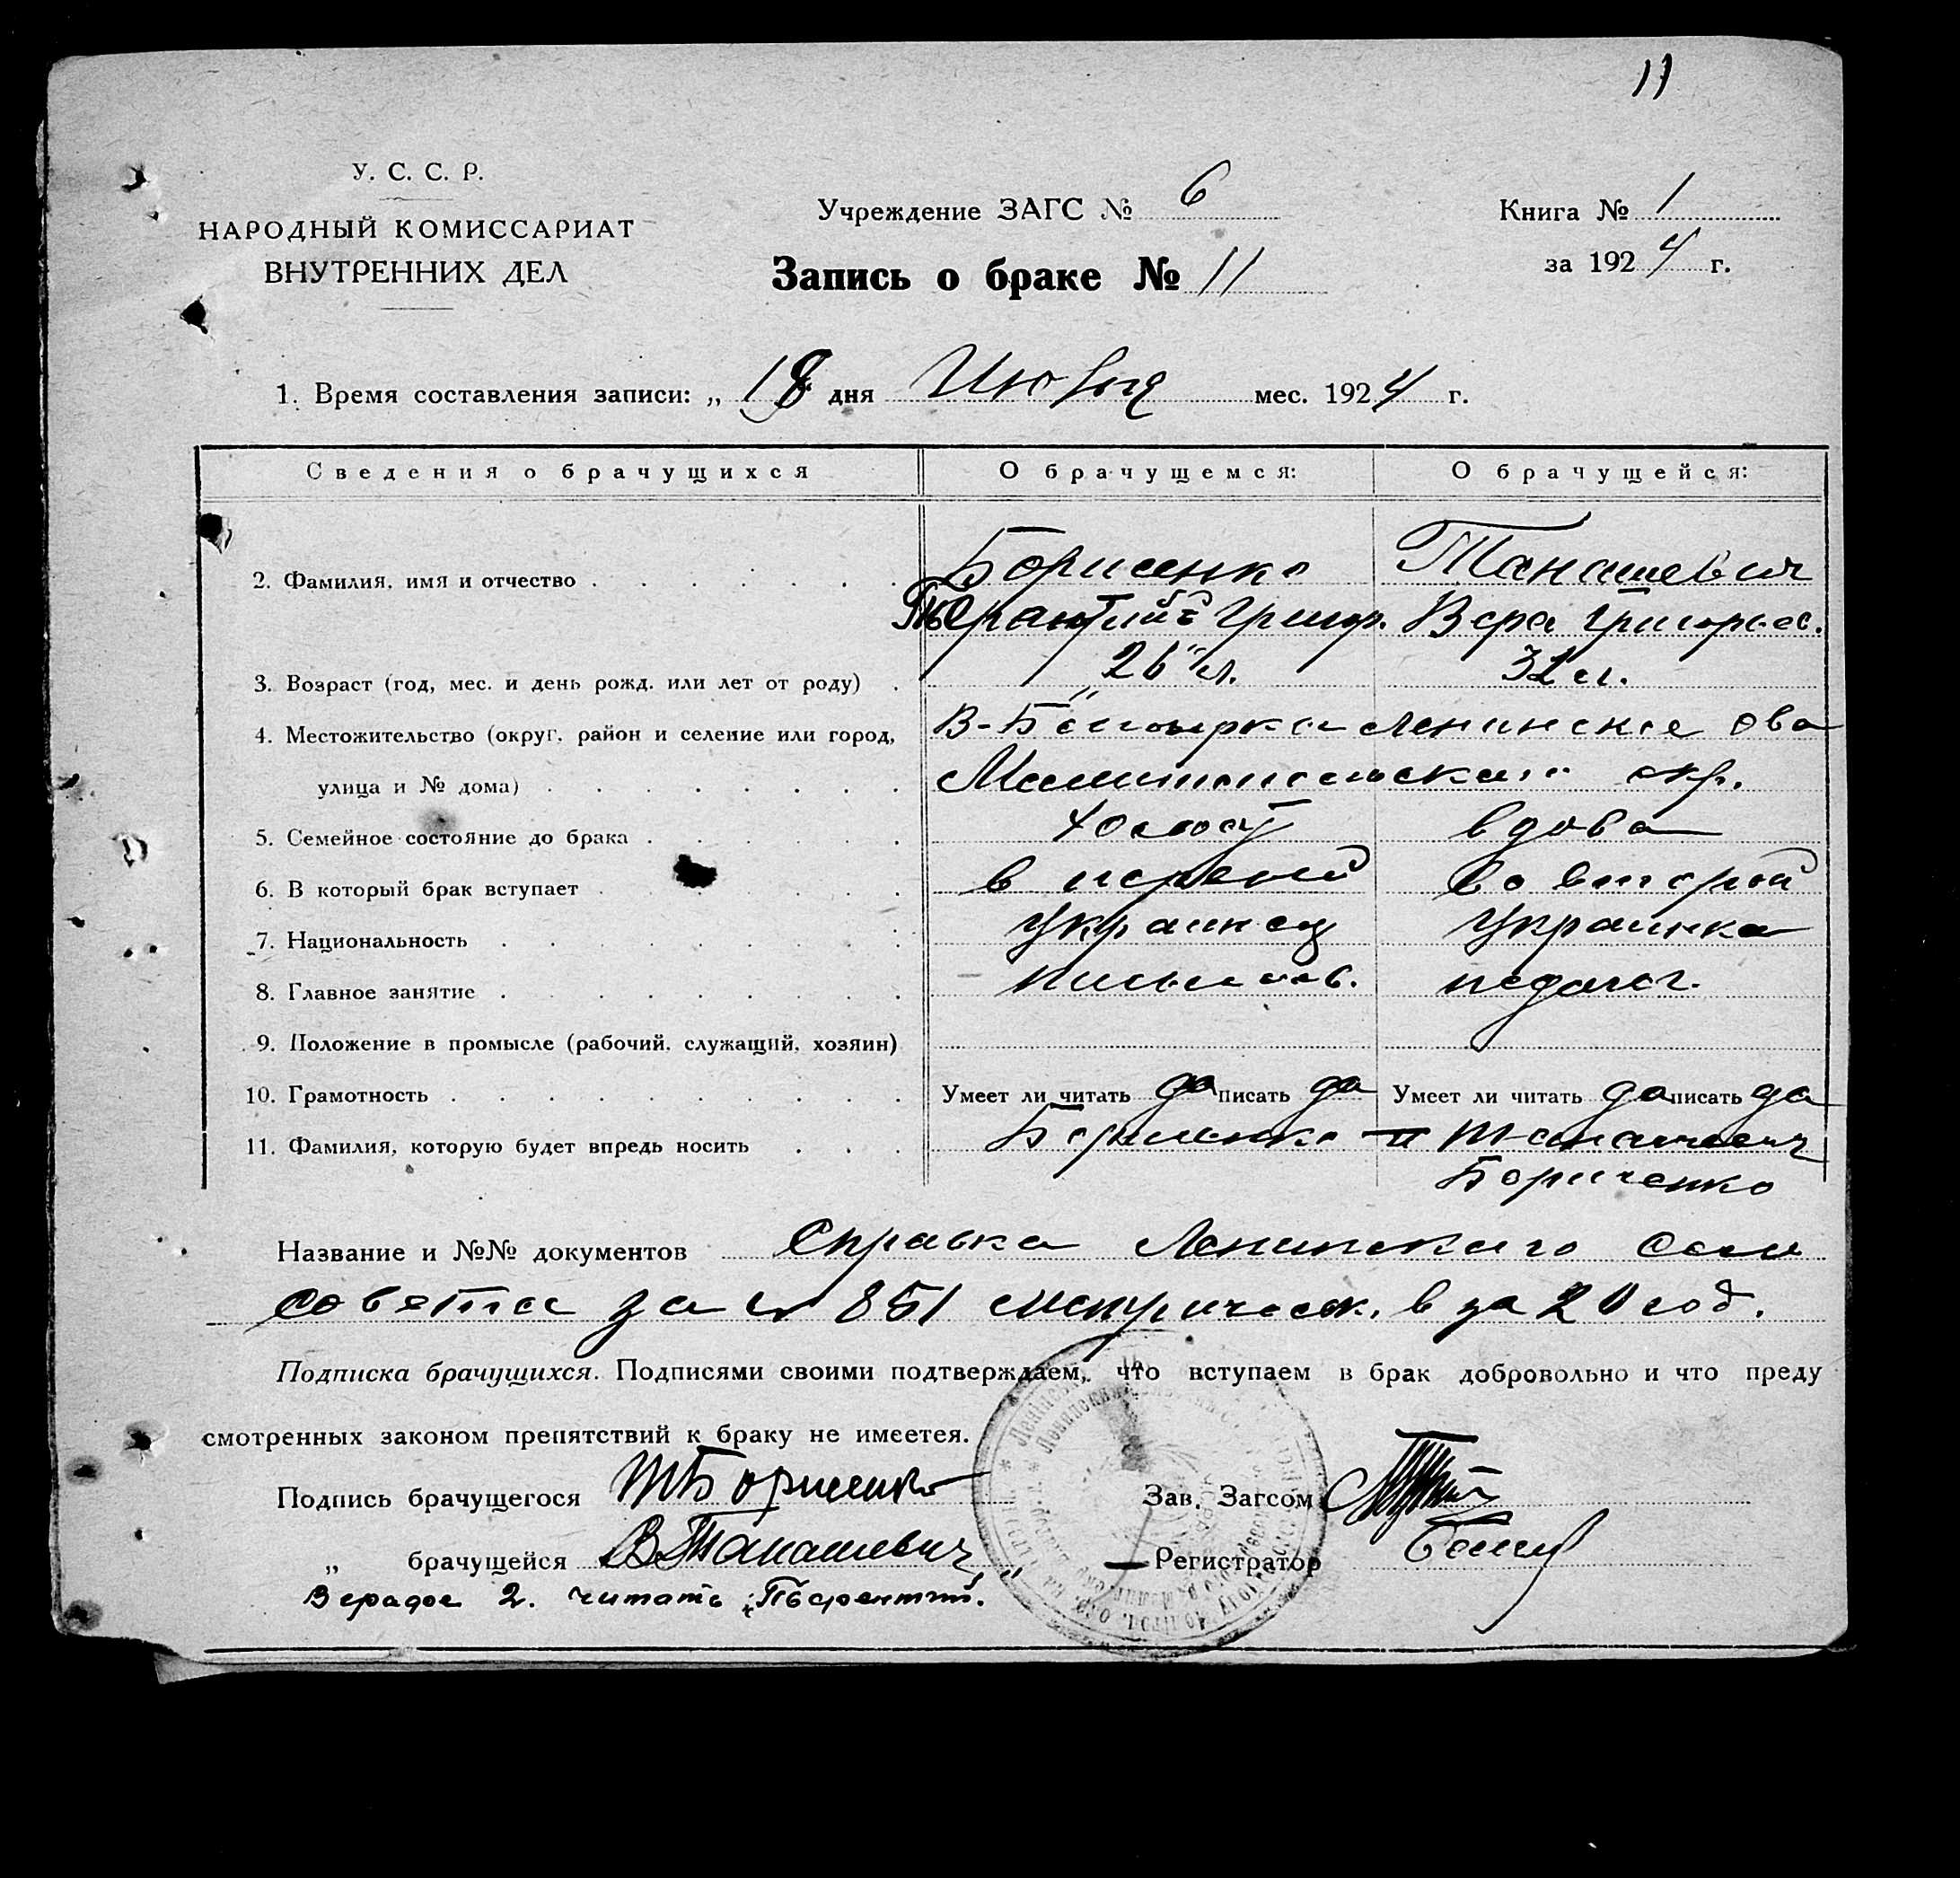 11
У. С. С. Р.
НАРОДНЫЙ КОМИССАРИАТ
ВНУТРЕННИХ ДЕЛ
Учреждение ЗАГС № 6
Запись о браке № 11
Книга № 1
за 1924 г.
1. Время составления записи: „ 18 дня Июня мес. 1924 г.
Сведения о брачущихся О брачущемся: О брачущейся:
2. Фамилия, имя и отчество Борисенко Танашевич
Григор. Вера Григорьев.
3. Возраст (год, мес. и день рожд. или лет от роду) 26 л. 32 л.
4. Местожительство (округ, район и селение или город, В- Ленинское
улица и № дома) Мелитопольского окр.
5. Семейное состояние до брака холост вдова
6. В который брак вступает в первый во второй
7. Национальность украинец украинка
8. Главное занятие педагог.
9. Положение в промысле (рабочий, служащий, хозяин)
10. Грамотность Умеет ли читать да писать да Умеет ли читать да писать да
11. Фамилия, которую будет впредь носить Борисенко Танашевич
Борисенко
Название и №№ документов Справка Ленинского сель
совета за № 851 метрическ. в за 20 год.
Подписка брачущихся. Подписями своими подтверждаем, что вступаем в брак добровольно и что преду
смотренных законом препятствий к браку не имеетея.
Подпись брачущегося Борисенко Зав. Загсом
„ брачущейся В Танашевич Регистратор
2. читать